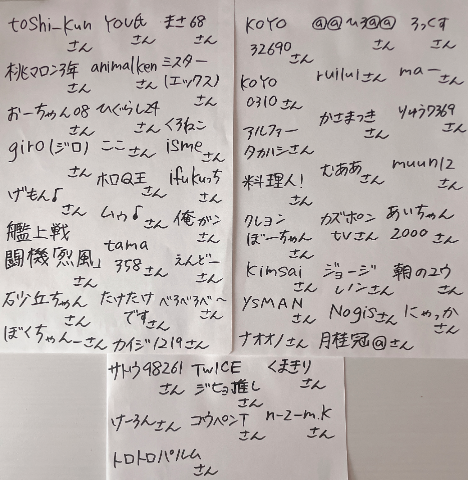 toshi_kun YOU氏 まさ68
さん さん さん
桃マロン3年 animalken ミスター
さん さん (エックス)
さん
おーちゃん08 ひぐらし24
さん さん くろねこ
さん
giro(ジロ) ここさん isme
さん さん
げもん♪ ホロQ王 ifukuっち
さん さん さん
艦上戦 ムゥ♪ 俺がン
さん さん
闘機「烈風」 tama えんどー
さん 358さん さん
石少丘ちゃん たけたけ べろべろべ〜
さん ですさん さん
ぼくちゃんーさん カイジ1219さん
KOYO ろっくす
32690 さん さん
さん
KOYO ruiluiさん maー
0310さん さん
アルファー かさまっき りゅう7369
タカハシさん さん さん
料理人! むああ muun12
さん さん さん
クレヨン カズポン あいちゃん
ぼーちゃん tvさん 2000さん
さん
Kimsai ジョージ 朝のユウ
さん レノンさん さん
YSMAN Nogisさん にゃっか
さん さん
ナオオノさん 月桂冠@さん
サトウ98261 TWICE くまきり
さん ジヒョ推し さん
さん
けーろんさん コウペンT n-2-m.K
さん さん
トロトロパルム
さん